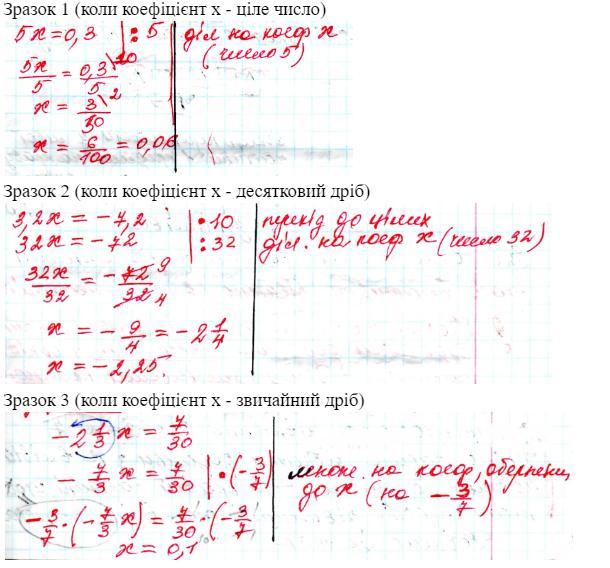 Зразок 1 (коли коефіцієнт х - ціле число)
5x = 0,3 | : 5 діл на коеф x
(число 5)
5x/5 = 0,3\10/5
x = 3\2/50
x = 6/100 = 0,06
Зразок 2 (коли коефіцієнт х - десятковий дріб)
3,2x = -7,2 | • 10 перехід до цілих
32x = -72 | : 32 діл. на коеф x (число 32)
32x/32 = - 72 9/32 4
x = - 9/4 = -2 1/4
x = -2,25.
Зразок 3 (коли коефіцієнт х - звичайний дріб)
-2 1/3 x = 7/30
- 7/3 x = 7/30 | • (- 3/7) множ. на коеф, обернений
до x (на - 3/7)
- 3/7 • (- 7/3 x) = 7/30 • (- 3/7
x = 0,1